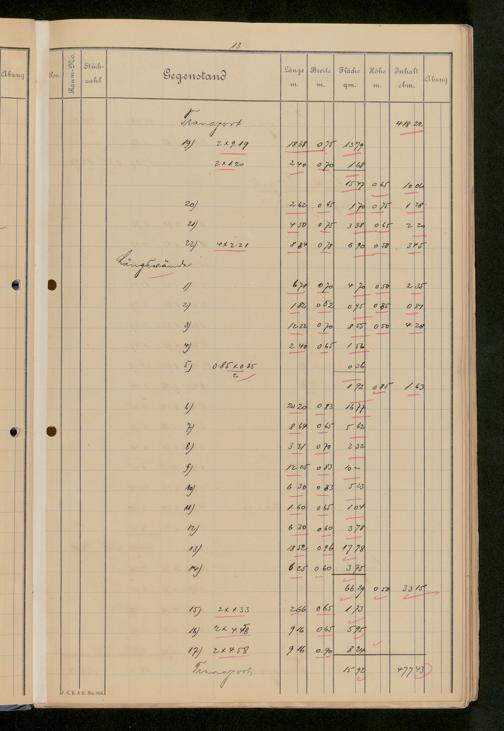 13
Abzug Raum-No. Stückzahl Gegenstand Länge m. Breite m. Fläche qm. Höhe m. Inhalt cbm. Abzug
Transport 418 22
19) 2 x 9.19 18 38 0 75 13 79
2 x 1.20 2 40 0 70 1 68
15 47 0 65 10 06
20) 2 62 0 65 1 70 0 75 1 28
21) 4 50 0 75 3 38 0 65 2 20
22) 4 x 2.21 8 84 0 78 6 90 0 50 3 45
Längswände
1) 6 71 0 70 4 70 0 50 2 35
2) 1 82 0 52 0 95 0 85 0 81
3) 12 22 0 70 8 55 0 50 4 28
4) 2 40 0 65 1 56
5) 0 36
1 92 0 85 1 63
6) 20 20 0 83 16 77
7) 8 64 0 65 5 62
8) 3 31 0 70 2 32
9) 12 05 0 83 10 -
10) 6 30 0 83 5 23
11) 1 60 0 65 1 04
12) 6 30 0 60 3 78
13) 18 52 0 96 17 78
14) 6 25 0 60 3 75
66 29 0 50 33 15
15) 2 x 1.33 2 66 0 65 1 73
16) 2 x 4.58 9 16 0 65 5 95
17) 2 x 4.58 9 16 0 90 8 24
Transport 15 92 477 43